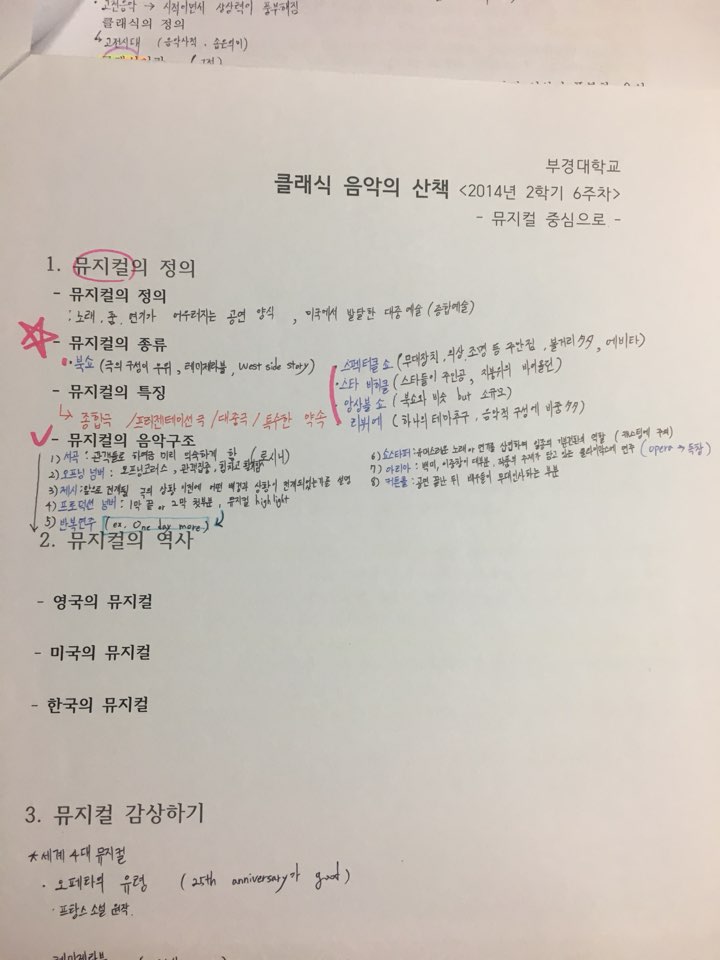 · 고전음악 → 시적이면서 상상력이 풍부해짐
클래식의 정의
↳ 고전시대 (음악사적 · 좁은의미)
부경대학교
클래식 음악의 산책 <2014년 2학기 6주차>
- 뮤지컬 중심으로 -
1. 뮤지컬의 정의
- 뮤지컬의 정의
: 노래, 춤, 연기가 어우러지는 공연 양식 , 미국에서 발달한 대중예술 (종합예술)
- 뮤지컬의 종류
· 북쇼 (극의 구성이 우위, 레미제라블, west side story)
· 스펙터클 쇼 (무대장치, 의상, 조명 등 주안점, 볼거리多多, 에비타)
· 스타 비히클 (스타들이 주인공, 지붕위의 바이올린)
· 앙상블 쇼 ( 북쇼와 비슷 but 소규모)
· 리뷔에 ( 하나의 테마추구, 음악적 구성에 비중多多)
- 뮤지컬의 특징
↳ 종합극 / 프리젠테이션극 / 대중극 / 특수한 약속
- 뮤지컬의 음악구조
1) 서곡 : 관객들로 하여금 미리 익숙하게 함 (로시니)
2) 오프닝 넘버 : 오프닝코러스, 관객집중,
3) 제시 : 앞으로 전개될 극의 상황 이전에 어떤 배경과 상황이 전개되었는가를 설명
4) 프로덕션 넘버 : 1막 끝 or 2막 첫부분, 뮤지컬 highlight
5) 반복연주 (ex. One day more)
6) 쇼스타퍼 : 유머스러운 노래 or 연기를 삽입하여 극중의 기분전환의 역할
7) 아리아 : 백미, 이중창이 대부분, 작품의 주제가 담고 있는 클라이막스에 연주 (opera → 독창)
8) 커튼콜 : 공연 끝난 뒤 배우들이 무대인사하는 부분
2. 뮤지컬의 역사
- 영국의 뮤지컬
- 미국의 뮤지컬
- 한국의 뮤지컬
3. 뮤지컬 감상하기
★ 세계 4대 뮤지컬
· 오페라의 유령 (25th anniversary가 good)
· 프랑스 소설 원작.
레미제라블